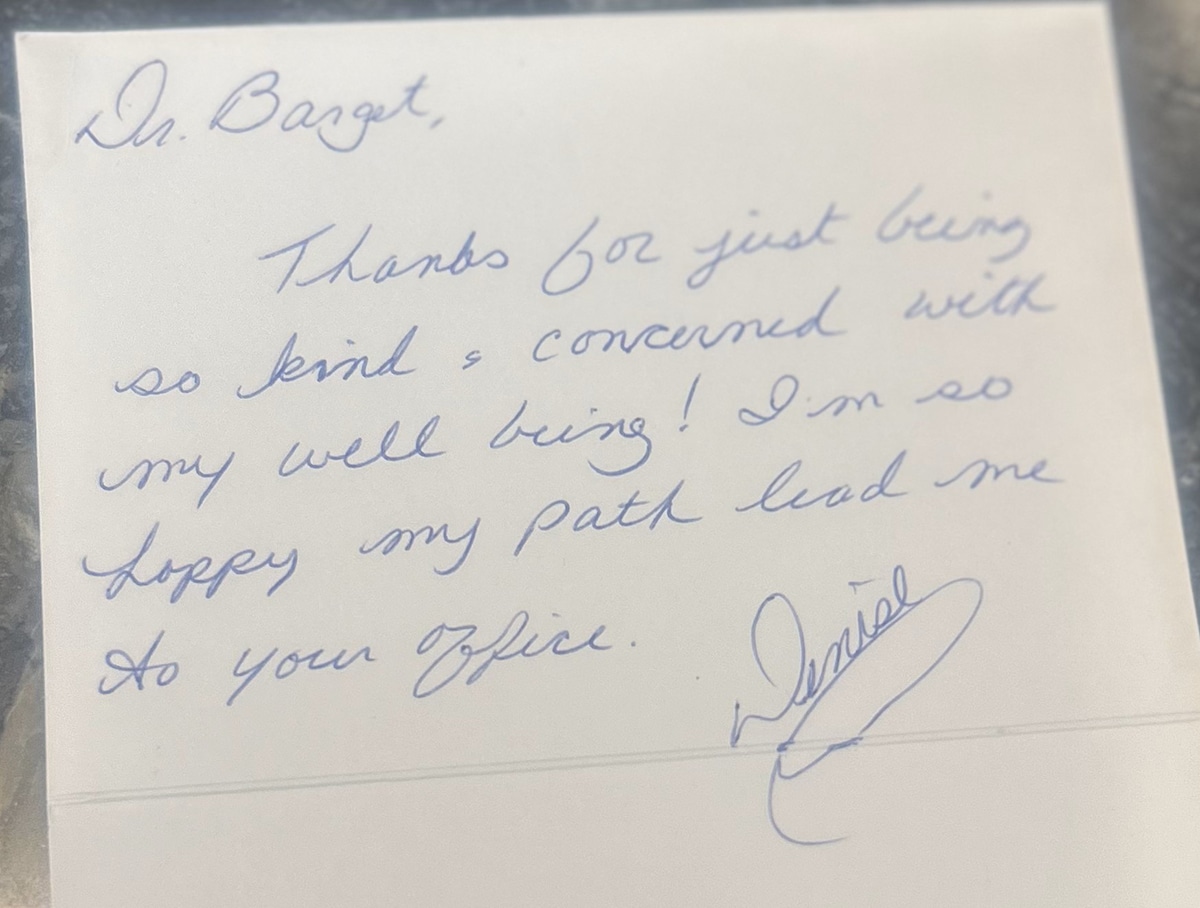 Dr. Barget,
Thanks for just being
so kind & concerned with
my well being! I'm so
happy my path lead me
to your office.
Denise